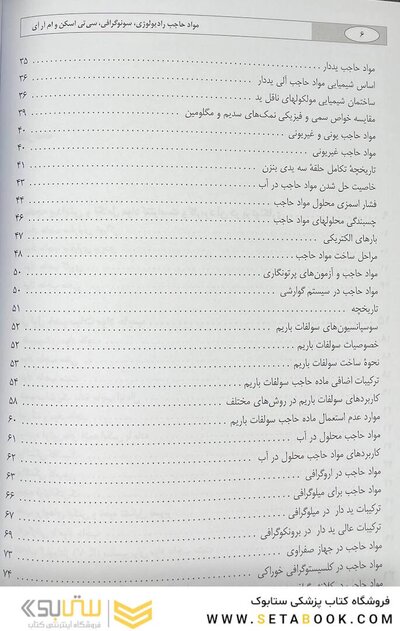 ۶
مواد حاجب رادیولوژی، سونوگرافی، سی‌تی اسکن و ام ار ای
مواد حاجب یددار ۳۵
اساس شیمیایی مواد حاجب آلی یددار ۳۶
ساختمان شیمیایی مولکولهای ناقل ید ۳۶
مقایسه خواص سمی و فیزیکی نمک‌های سدیم و مگلومین ۳۹
مواد حاجب یونی و غیریونی ۴۰
مواد حاجب غیریونی ۴۰
تاریخچهٔ تکامل حلقه سه یدی بنزن ۴۱
خاصیت حل شدن مواد حاجب در آب ۴۳
فشار اسمزی محلول مواد حاجب ۴۴
چسبندگی محلولهای مواد حاجب ۴۶
بارهای الکتریکی ۴۷
مراحل ساخت مواد حاجب ۴۸
مواد حاجب و آزمون‌های پرتونگاری ۵۰
مواد حاجب در سیستم گوارشی ۵۰
تاریخچه ۵۱
سوسپانسیون‌های سولفات باریم ۵۲
خصوصیات سولفات باریم ۵۲
نحوهٔ ساخت سولفات باریم ۵۳
ترکیبات اضافی ماده حاجب سولفات باریم ۵۴
کاربردهای سولفات باریم در روش‌های مختلف ۵۸
موارد عدم استعمال ماده حاجب سولفات باریم ۶۰
مواد حاجب محلول در آب ۶۱
کاربردهای مواد حاجب محلول در آب ۶۲
مواد حاجب در اروگرافی ۶۳
مواد حاجب برای میلوگرافی ۶۶
ترکیبات ید دار در میلوگرافی ۶۷
ترکیبات عالی ید دار در برونکوگرافی ۶۹
مواد حاجب در جهاز صفراوی ۷۳
مواد حاجب در کلسیستوگرافی خوراکی ۷۴
ستابوک
فروشگاه اینترنتی کتاب
فروشگاه کتاب پزشکی ستابوک
www.SETABOOK.com